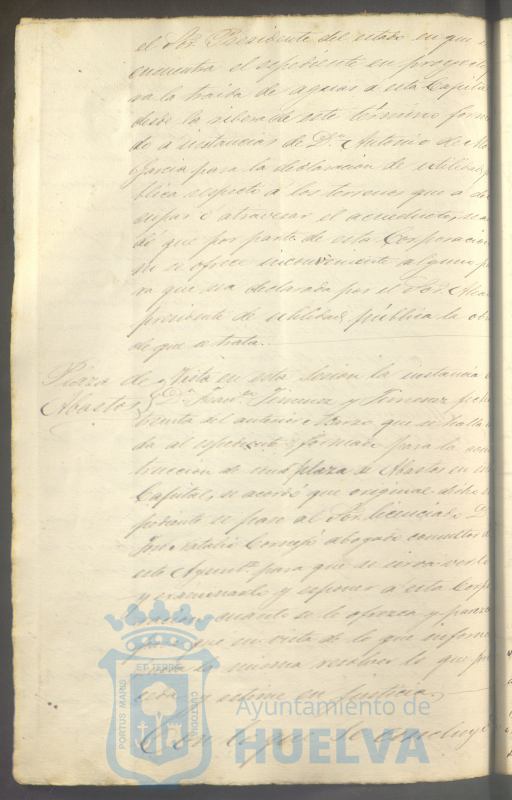 el Sor. Presidente del estado en que se
encuentra el espediente en proyecto
para la traida de aguas á esta Capital
desde la ribera de este término forma
do á instancias de Dn. Antonio de
Garcia para la declaracion de utilidad pú
blica respecto á los terrenos que á de
upar ó atravesar el acueducto,
dó que por parte de esta Corporacion
no se ofrece inconveniente alguno pa
ra que sea declarada por el Sor.
presidente de utilidad pública la obra
de que se trata.
Plaza de Vista en esta sesion la instancia
Abastos Dn. Jimenez y Jimenez fecha
treinta del anterior Marzo que se halla
da al espediente formado para la cons
truccion de una plaza de Abastos en esta
Capital, se acordó que original dicho es
pediente se pase al Sor. licenciado D.
José abogado consultor de
este Ayuntо. para que se sirva verlo
y examinarlo y esponer á esta Corpo
racion cuanto se le ofrezca y parezca
para que en vista de lo que informe
la misma resolver lo que pro
ceda y estime en Justicia
Con lo que se concluyó
PORTUS MARIS ET TERRE CUSTODIA
Ayuntamiento de
HUELVA